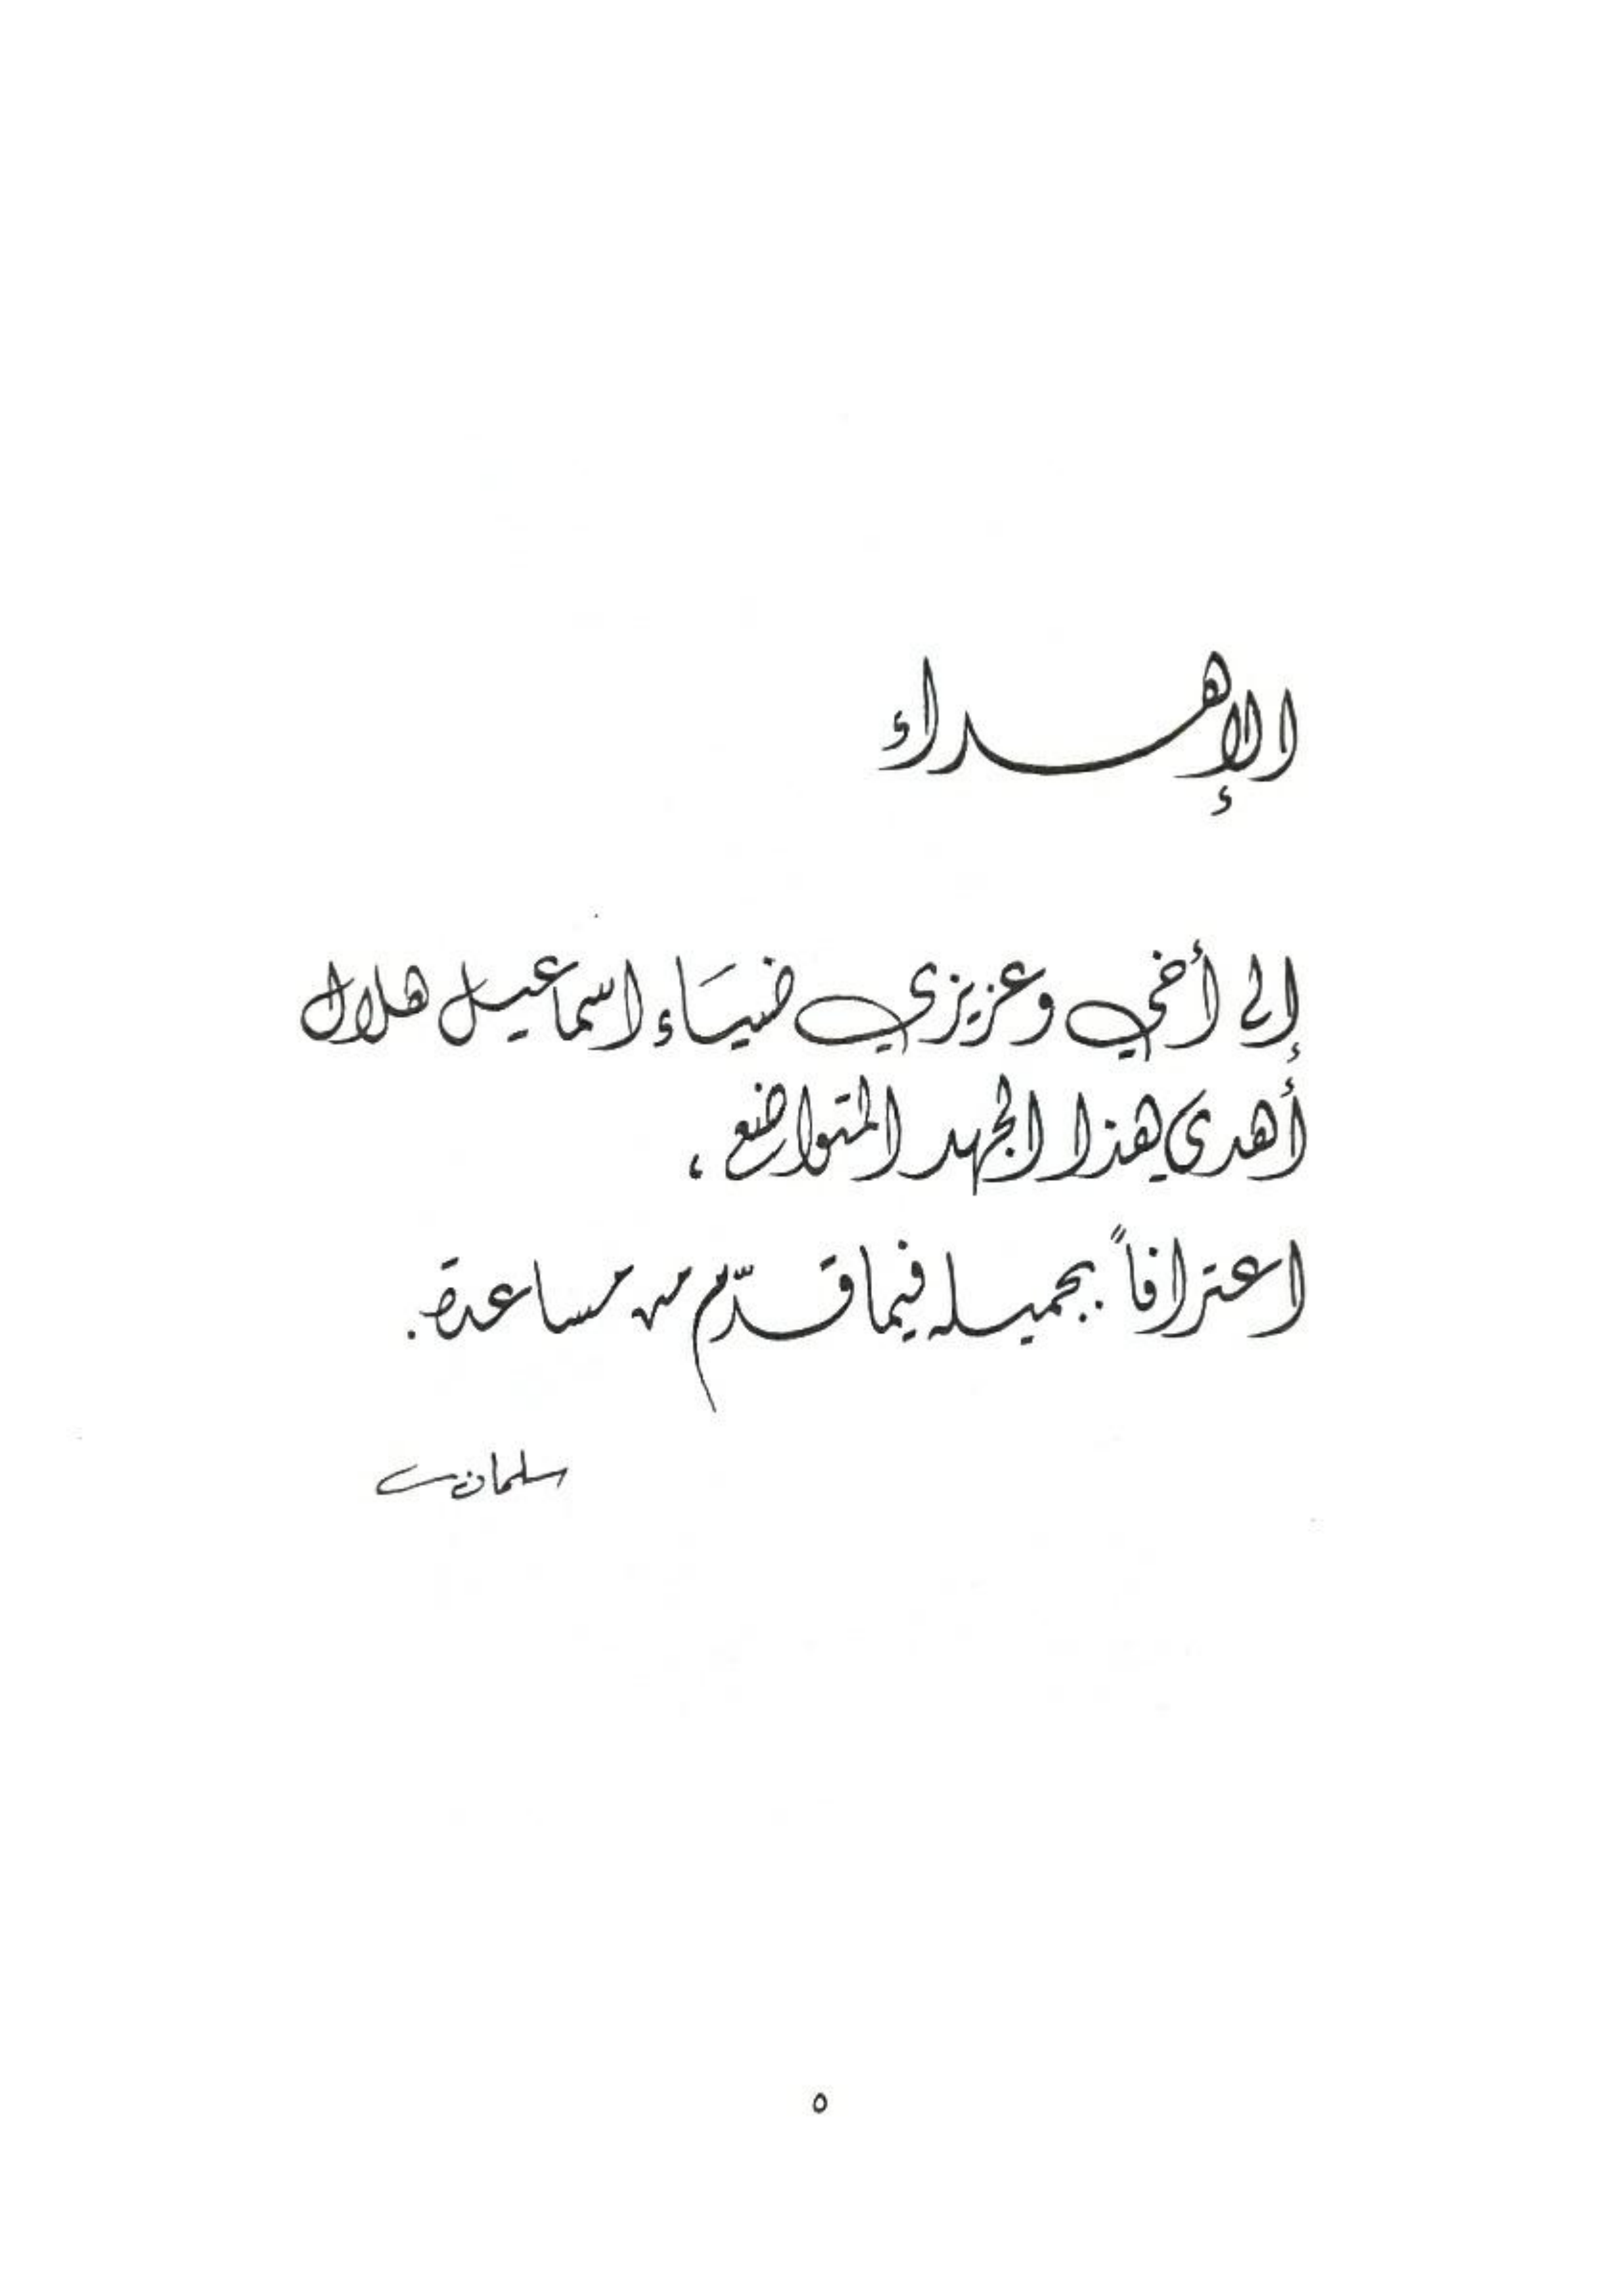 الإهداء
إلى أخي وعزيزي ضياء اسماعيل هلال
أهدي هذا الجهد المتواضع ،
اعترافاً بجميله فيما قدّم من مساعدة .
سلمان
٥